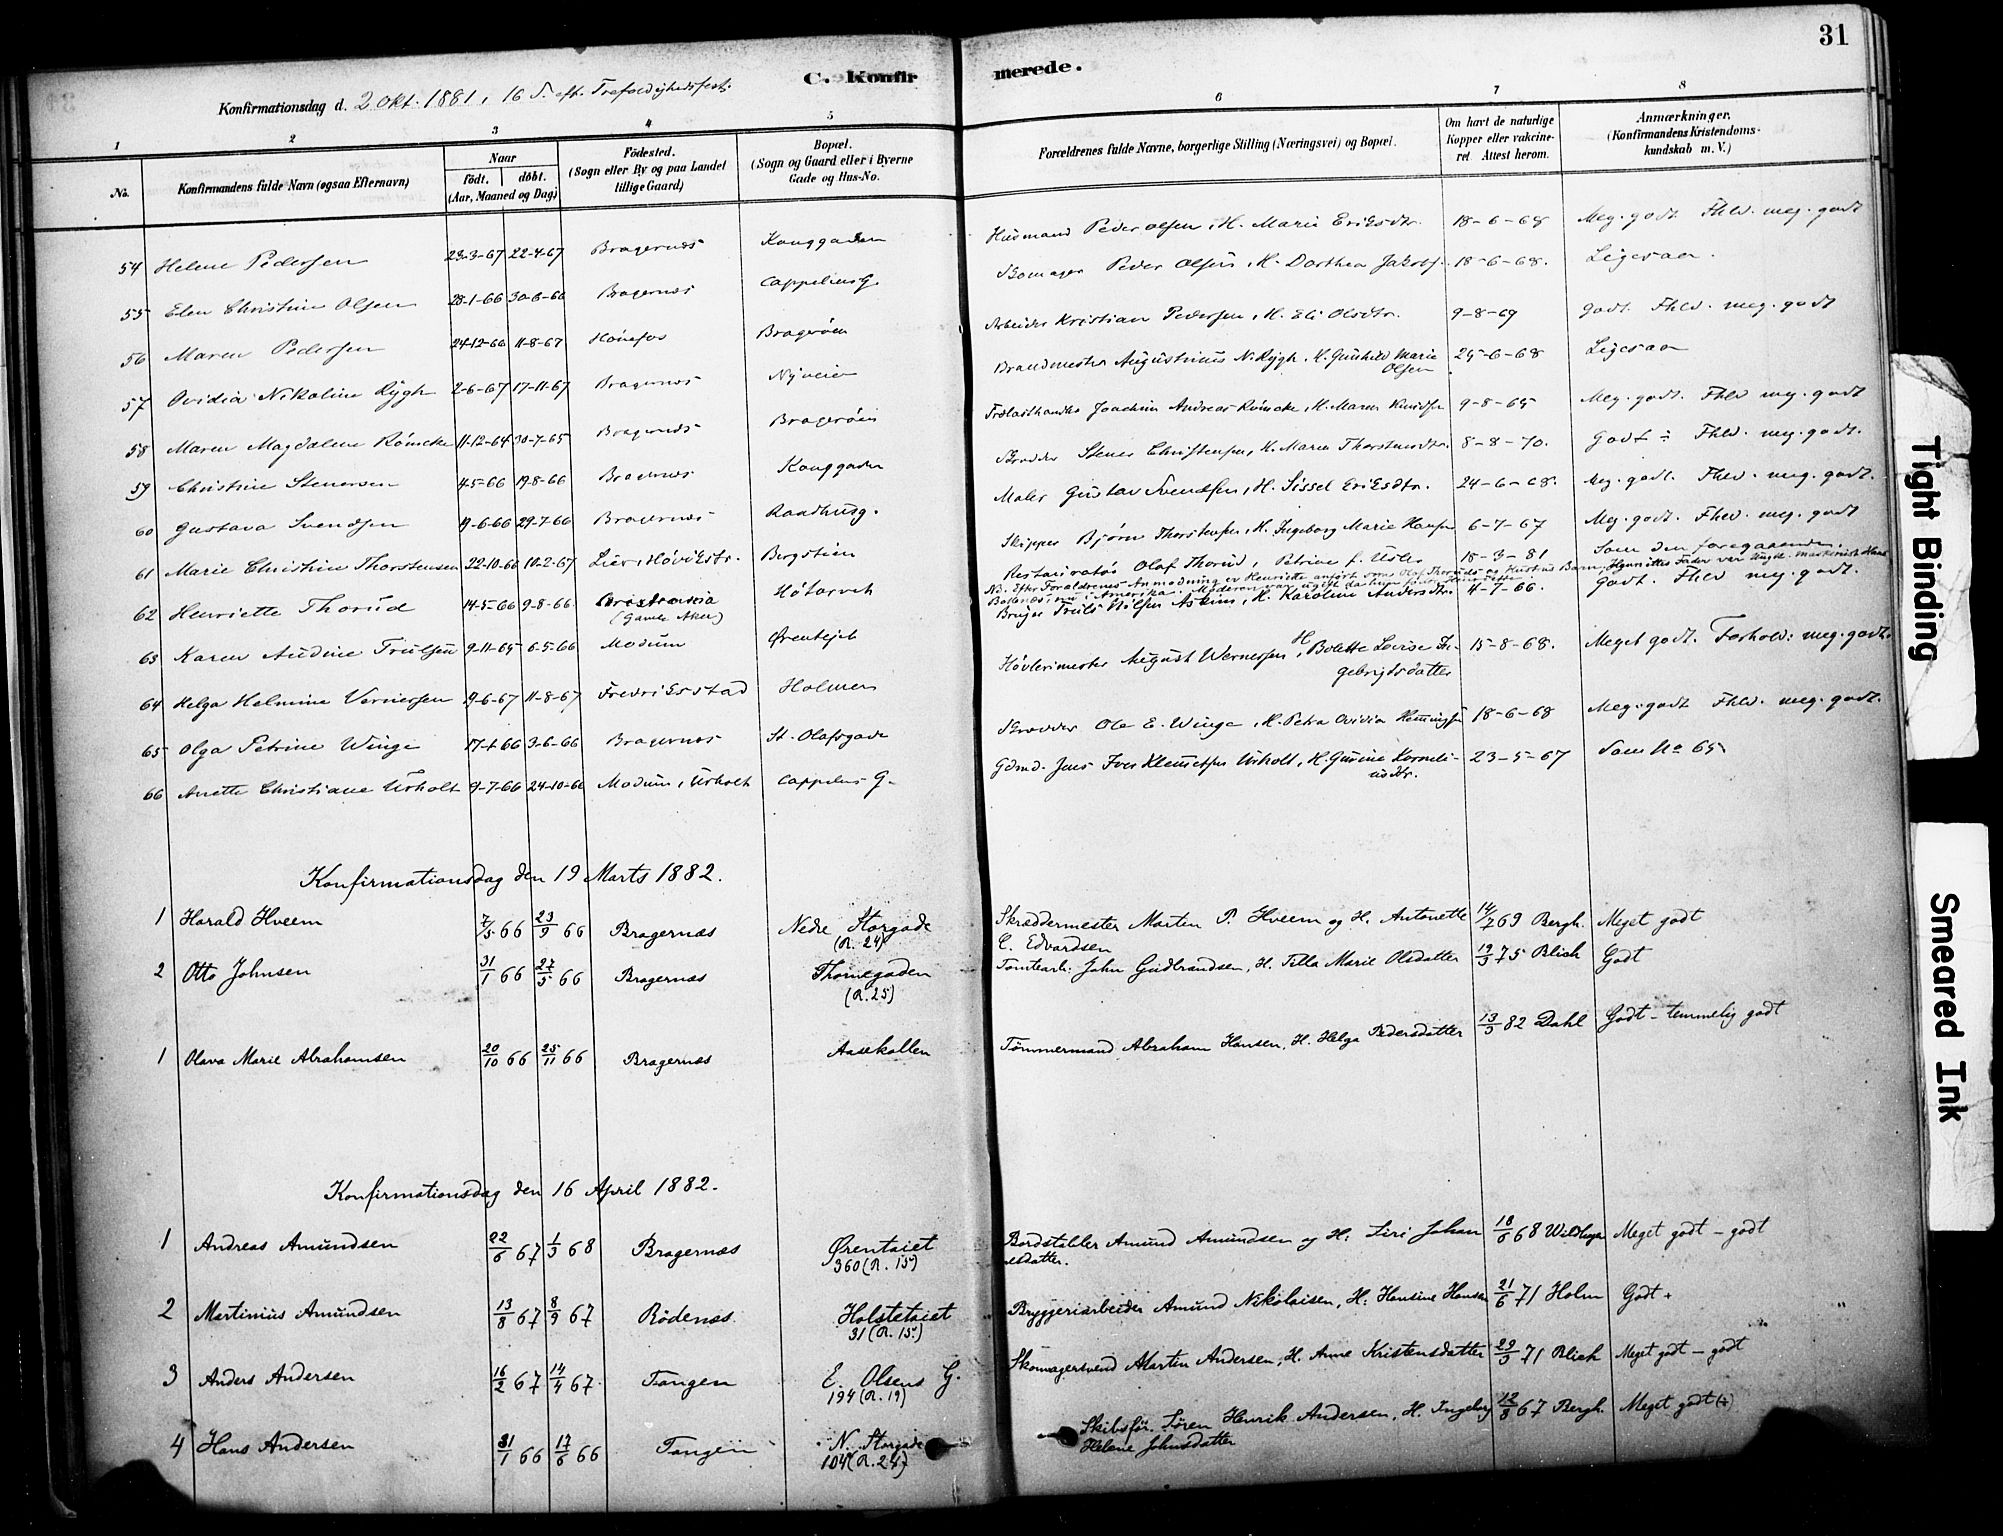 31
C. Konfirmerede.
Konfirmationsdag d. 2 Okt. 1881, 16 S. eft. Trefoldighedsfest.
1 2 3 4 5 6 7 8
No. Konfirmandens fulde Navn (ogsaa Efternavn) Naar født. døbt. (Aar, Maaned og Dag) Fødested. (Sogn eller By og paa Landet tillige Gaard) Bopæl. (Sogn og Gaard eller i Byerne Gade og Hus-No. Forældrenes fulde Navne, borgerlige Stilling (Næringsvei) og Bopæl. Om havt de naturlige Kopper eller vakcineret. Attest herom. Anmærkninger. (Konfirmandens Kristendomskundskab m. V.)
54 Helene Pedersen 23-3-67 22-4-67 Bragernæs Konggaden Husmand Peder Olsen, H. Marie Eriksdtr. 18-6-68 Meg. godt Fhld. meg. godt
55 Elen Christine Olsen 28-1-66 30-6-66 Bragernæs Cappelens G. Peder Olsen, H. Dorthea 18-6-68. Ligesaa.
56 Maren Pedersen 24-12-66 11-8-67 Hønefos Bragerøen Arbeider Kristian Pedersen, H. Eli Olsdtr. 9-8-69 Godt. Fhld. meg. godt
57 Ovidia Nikoline Rygh 2-6-67 17-11-67 Bragernæs Nyveien Brandmester Augustinus N. Rygh, H. Gunhild Marie Olsen 25-6-68 Ligesaa
58 Maren Magdalene Römcke 11-12-64 30-7-65 Bragernæs Bragerøen Trælasthandler Joachim Andreas Römcke, H. Maren 9-8-65 Meg. godt. Fhld meg. godt
59 Christine Stenersen 4-5-66 19-8-66 Bragernæs Konggaden Stener Christensen, H. Maren Thorstensdtr. 8-8-70. Godt ÷ Fhld. meg. godt.
60 Gustava Svendsen 9-6-66 29-7-66 Bragernæs Raadhusg. Maler Gustav Svendsen, H. Sissel Eriksdtr. 24-6-68. Meg. godt. Fhld. meg. godt.
61 Marie Christine Thorstensen 22-10-66 10-2-67 Lier, Høvikstr. Bergstien Skipper Bjørn Thorstensen, H. Ingeborg Marie Hansen 6-7-67 Meg. godt. Fhld. meg. godt
62 Henriette Thorud 14-5-66 9-8-66 Cristiania (Gamle Aker) Høtorvet Restauratør Olaf Thorud, Petrine f. 18-3-81 Som den foregaaende.
NB. Efter Forældrenes Anmodning er Henriette anført som Olaf Thoruds og Hustrus Barn, Henriettes Fader var
63 Karen Audine Trulsen 9-11-65 6-5-66 Modum Ørentejet Bruger Truls Nilsen Askim, H. Karoline Andersdtr. 4-7-66. Godt. Fhld meg. godt.
64 Helga Helmine Vernersen 9-6-67 11-8-67 Fredriksstad Holmen Høvlerimester August Wernersen, H. Bolette Lovise Ingebrigtsdatter 15-8-68. Meget godt. Forhold: meg. godt.
65 Olga Petrine Winge 17-1-66 3-6-66 Bragernæs St. Olafsgade Ole E. Winge, H. Petra Ovidia Henningsen 18-6-68 Meg. godt Fhld. meg. godt.
66 Anette Christiane Urholt 9-7-66 24-10-66 Modum, Urholt Cappelens G. Gdmd. Jens Iver Klemetsen Urholt, H. Gurine Korneliusdtr. 23-5-67 Som No 65
Konfirmationsdag den 19 Marts 1882.
1 Harald Hveem 7/5 66 23/9 66 Bragernæs Nedre Storgade (R. 24) Skreddermester Morten P. Hveem og H. Antonette C. Edvardsen 14/7 69 Bergh. Meget godt
2 Otto Johnsen 31/1 66 27/5 66 Bragernæs Thornegaden (R. 25) Tomtearb. John Gudbrandsen, H. Tilla Marie Olsdatter 19/5 75 Blich Godt
1 Olava Marie Abrahamsen 20/10 66 25/11 66 Bragernæs Aasekollen Tømmermand Abraham Hansen, H. Helga Pedersdatter 13/3 82 Dahl Godt - temmelig godt
Konfirmationsdag den 16 April 1882.
1 Andreas Amundsen 22/6 67 1/3 68 Bragernæs Ørentaiet 360 (R. 15) Bordstabler Amund Amundsen og H. Siri Johannesdatter. 18/6 68 Meget godt - godt
2 Martinius Amundsen 13/8 67 8/9 67 Rødenæs Holstetaiet 31 (R. 15) Bryggeriarbeider Amund Nikolaisen, H. Hansine Hansen 21/6 71 Holm Godt +
3 Anders Andersen 16/2 67 14/4 67 Tangen E. Olsens G. 194 (R. 19) Skomagersvend Martin Andersen, H. Anne Kristensdatter 29/3 71 Blich Meget godt - godt
4 Hans Andersen 31/1 66 17/6 66 Tangen N. Storgade 104 (R. 24) Skibsfør. Søren Henrik Andersen, H. Ingeborg Helene Johnsdatter 12/8 67 Bergh. Meget godt (+)
Tight Binding
Smeared Ink